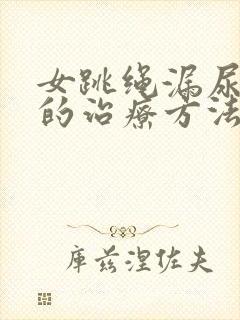 女跳绳漏尿
的治疗方法
库兹涅佐夫